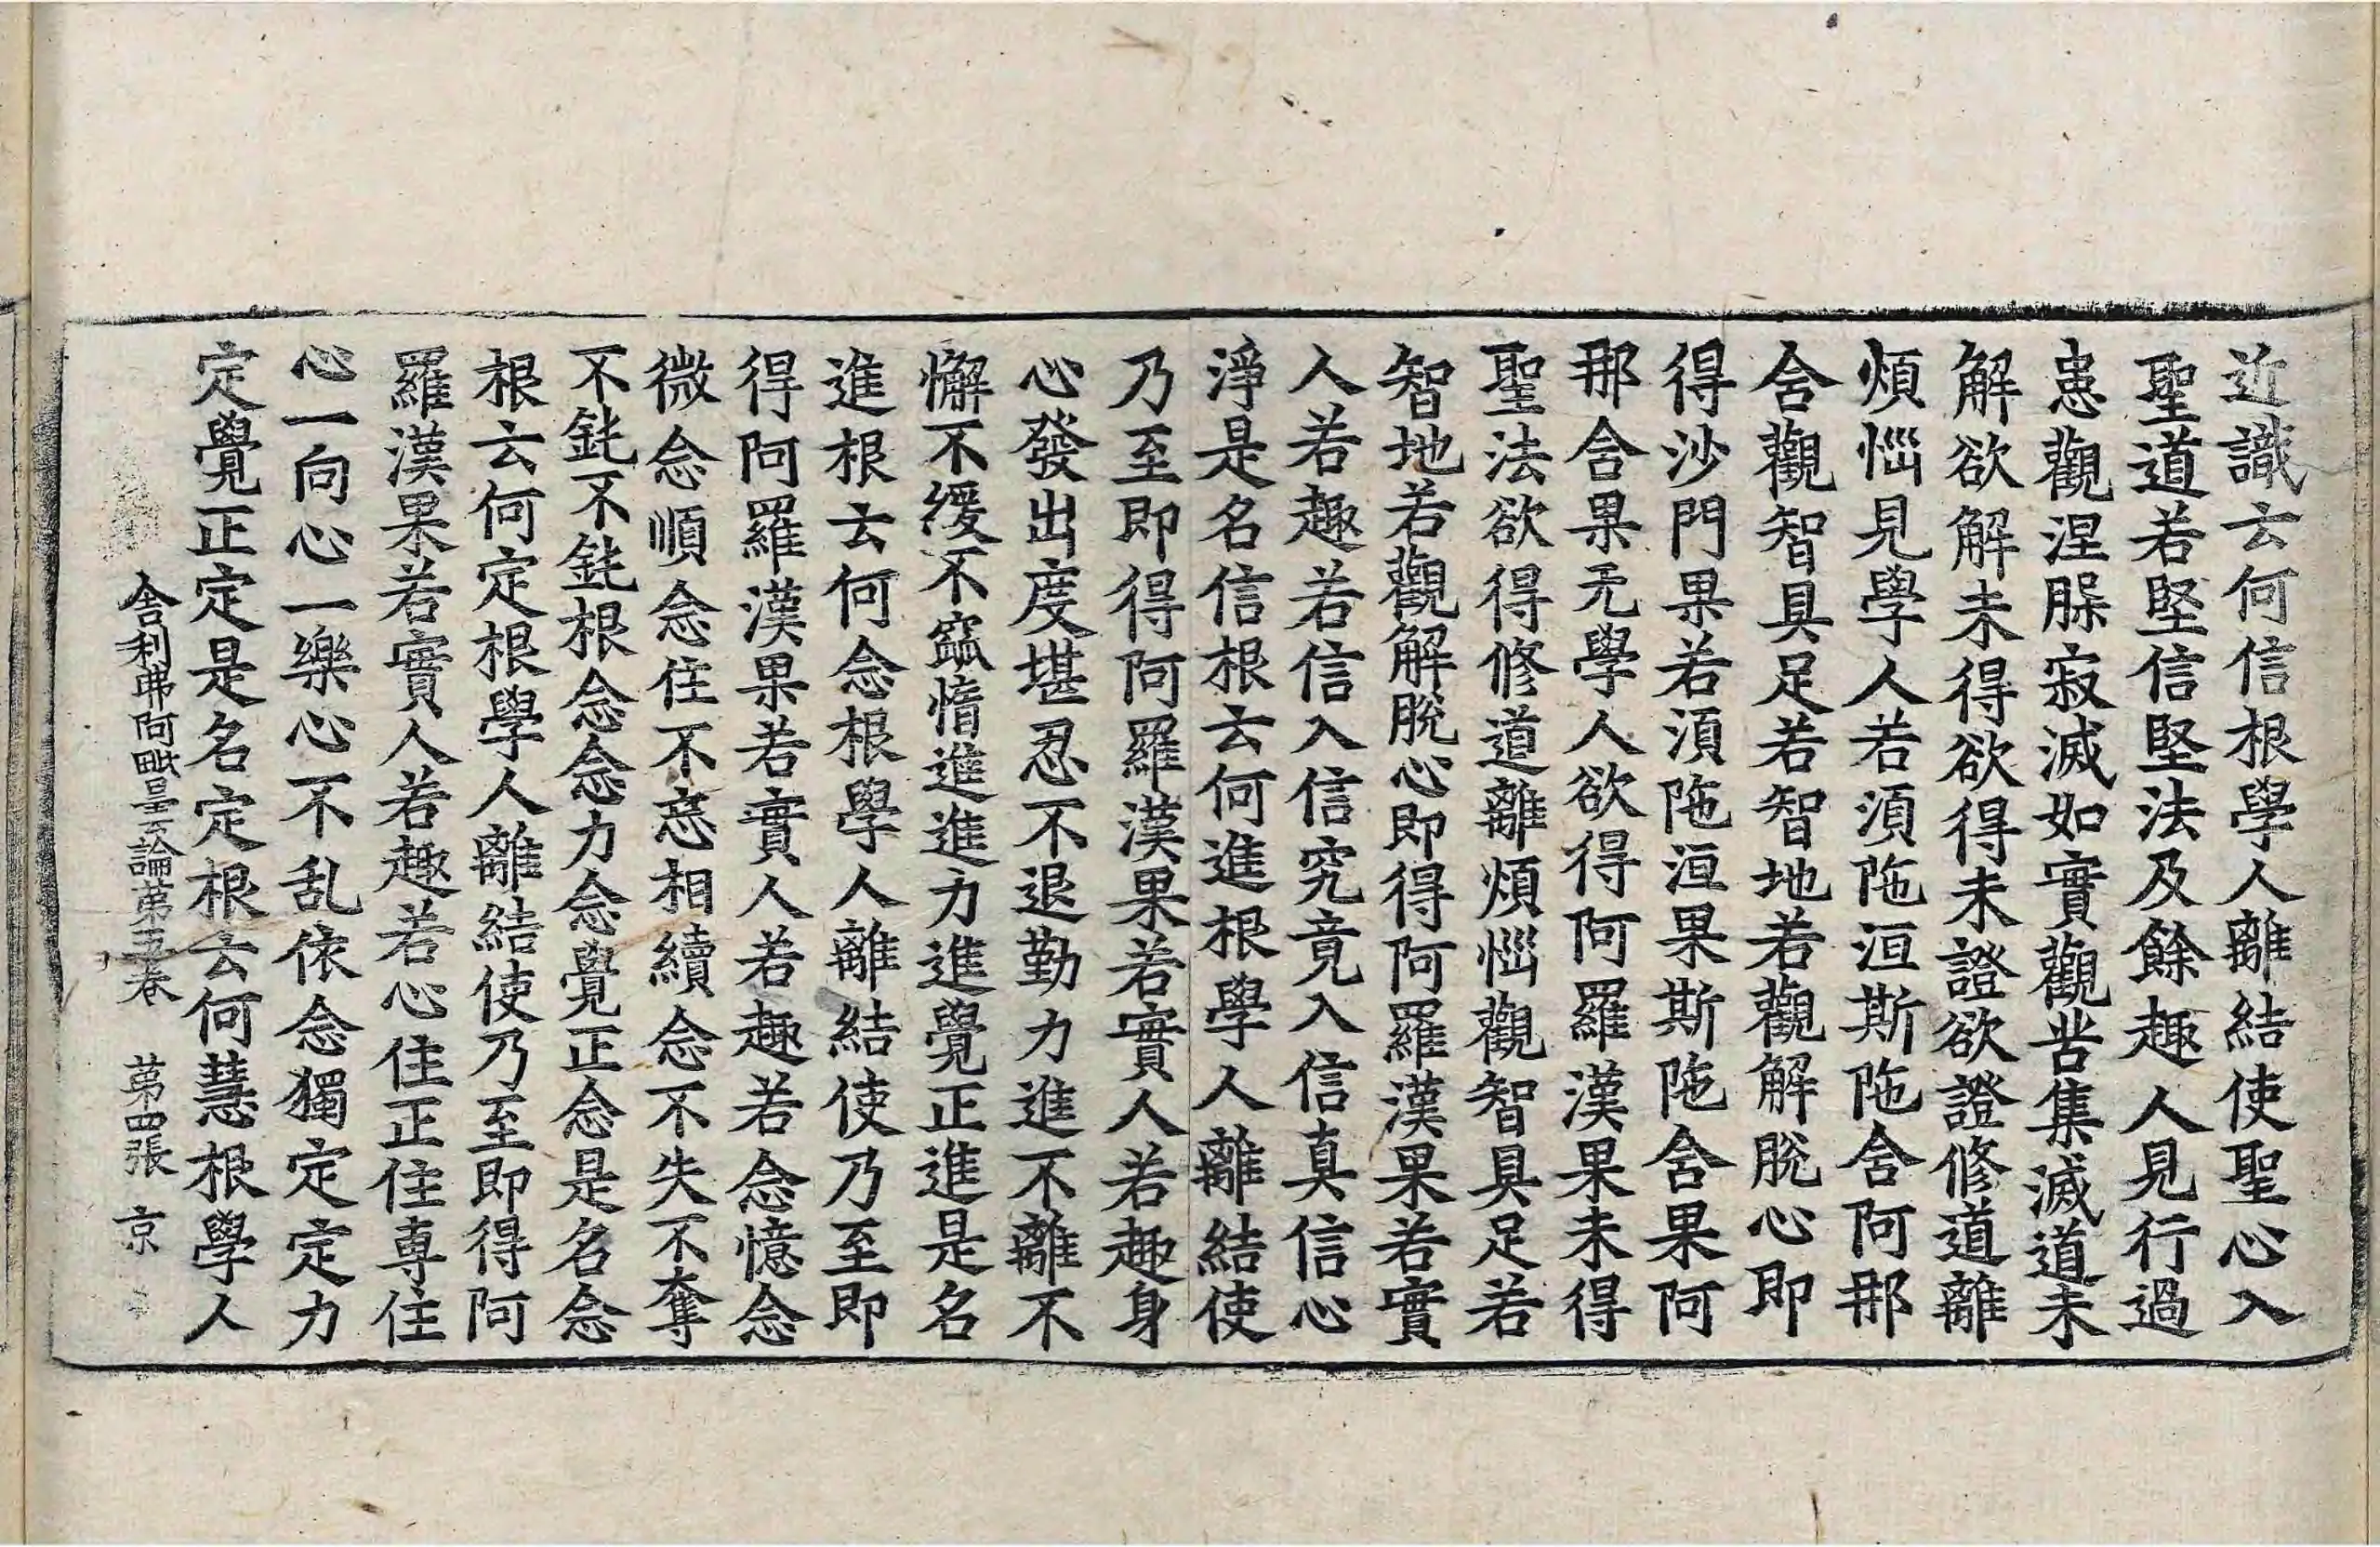 近識云何信根學人離結使聖心入
聖道若堅信堅法及餘趣人見行過
患觀涅槃寂滅如實觀苦集滅道未
解欲解未得欲得未證欲證修道離
煩惱見學人若湏陁洹斯陁含阿那
含觀智具足若智地若觀解脫心即
得沙門果若湏陁洹果斯陁含果阿
那含果无學人欲得阿羅漢果未得
聖法欲得修道離煩惱觀智具足若
智地若觀解脫心即得阿羅漢果若實
人若趣若信入信究竟入信真信心
淨是名信根云何進根學人離結使
乃至即得阿羅漢果若實人若趣身
心發出度堪忍不退勤力進不離不
懈不緩不窳惰進進力進覺正進是名
進根云何念根學人離結使乃至即
得阿羅漢果若實人若趣若念憶念
微念順念住不忘相續念不失不奪
不鈍不鈍根念念力念覺正念是名念
根云何定根學人離結使乃至即得阿
羅漢果若實人若趣若心住正住専住
心一向心一樂心不乱依念獨定定力
定覺正定是名定根云何慧根學人
舍利弗阿毗曇論第五卷　第四張　京